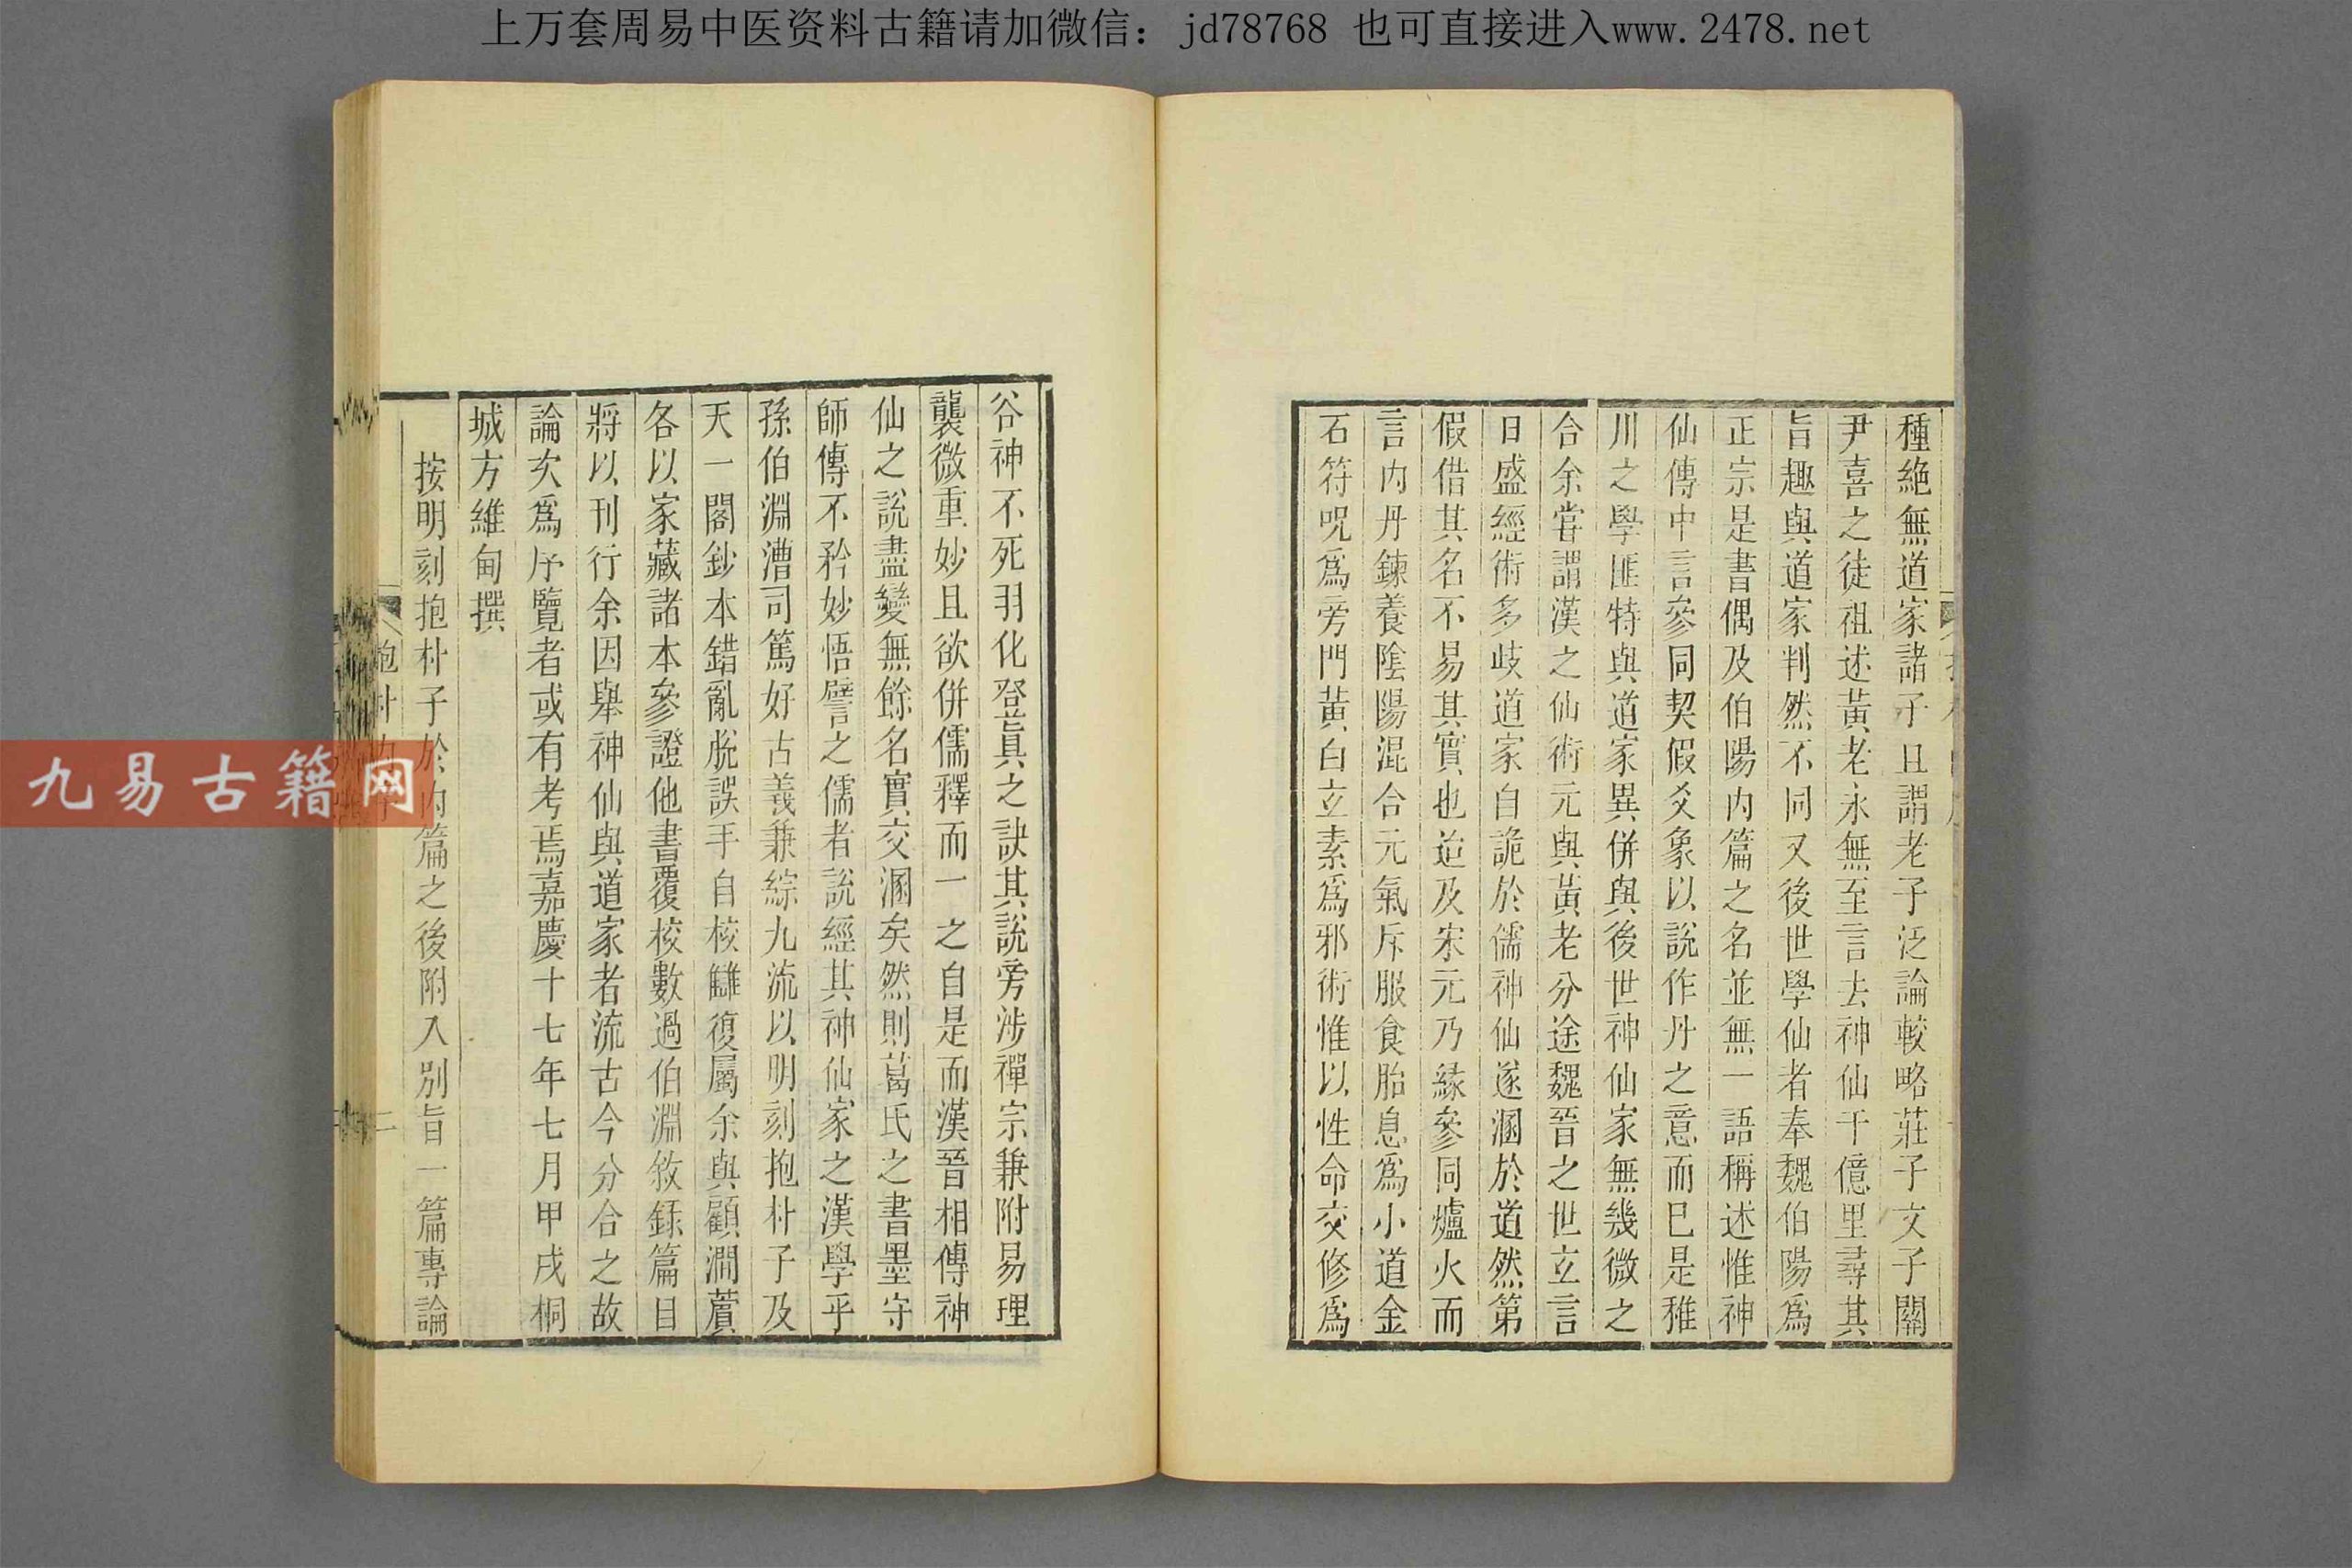 上万套周易中医资料古籍请加微信：jd78768 也可直接进入www.2478.net
種絶無道家諸子且謂老子泛論較略莊子文子關
尹喜之徒祖述黃老永無至言去神仙千億里尋其
旨趣與道家判然不同又後世學仙者奉魏伯陽爲
正宗是書偶及伯陽內篇之名並無一語稱述惟神
仙傳中言參同契假爻象以說作丹之意而巳是稚
川之學匪特與道家異併與後世神仙家無幾微之
合余嘗謂漢之仙術元與黃老分途魏晉之世玄言
日盛經術多歧道家自詭於儒神仙遂溷於道然第
假借其名不易其實也迨及宋元乃緣參同爐火而
言內丹鍊養陰陽混合元氣斥服食胎息爲小道金
石符呪爲旁門黃白玄素爲邪術惟以性命交修爲
谷神不死羽化登眞之訣其說旁涉禪宗兼附易理
襲微重妙且欲併儒釋而一之自是而漢晉相傳神
仙之說盡變無餘名實交溷矣然則葛氏之書墨守
師傳不矜妙悟譬之儒者說經其神仙家之漢學乎
孫伯淵漕司篤好古義兼綜九流以明刻抱朴子及
天一閣鈔本錯亂脫誤手自校讎復屬余與顧澗薲
各以家藏諸本參證他書覆校數過伯淵敘錄篇目
將以刊行余因舉神仙與道家者流古今分合之故
論次爲序覽者或有考焉嘉慶十七年七月甲戌桐
城方維甸撰
按明刻抱朴子於內篇之後附入別旨一篇專論
抱朴
二
九易古籍网